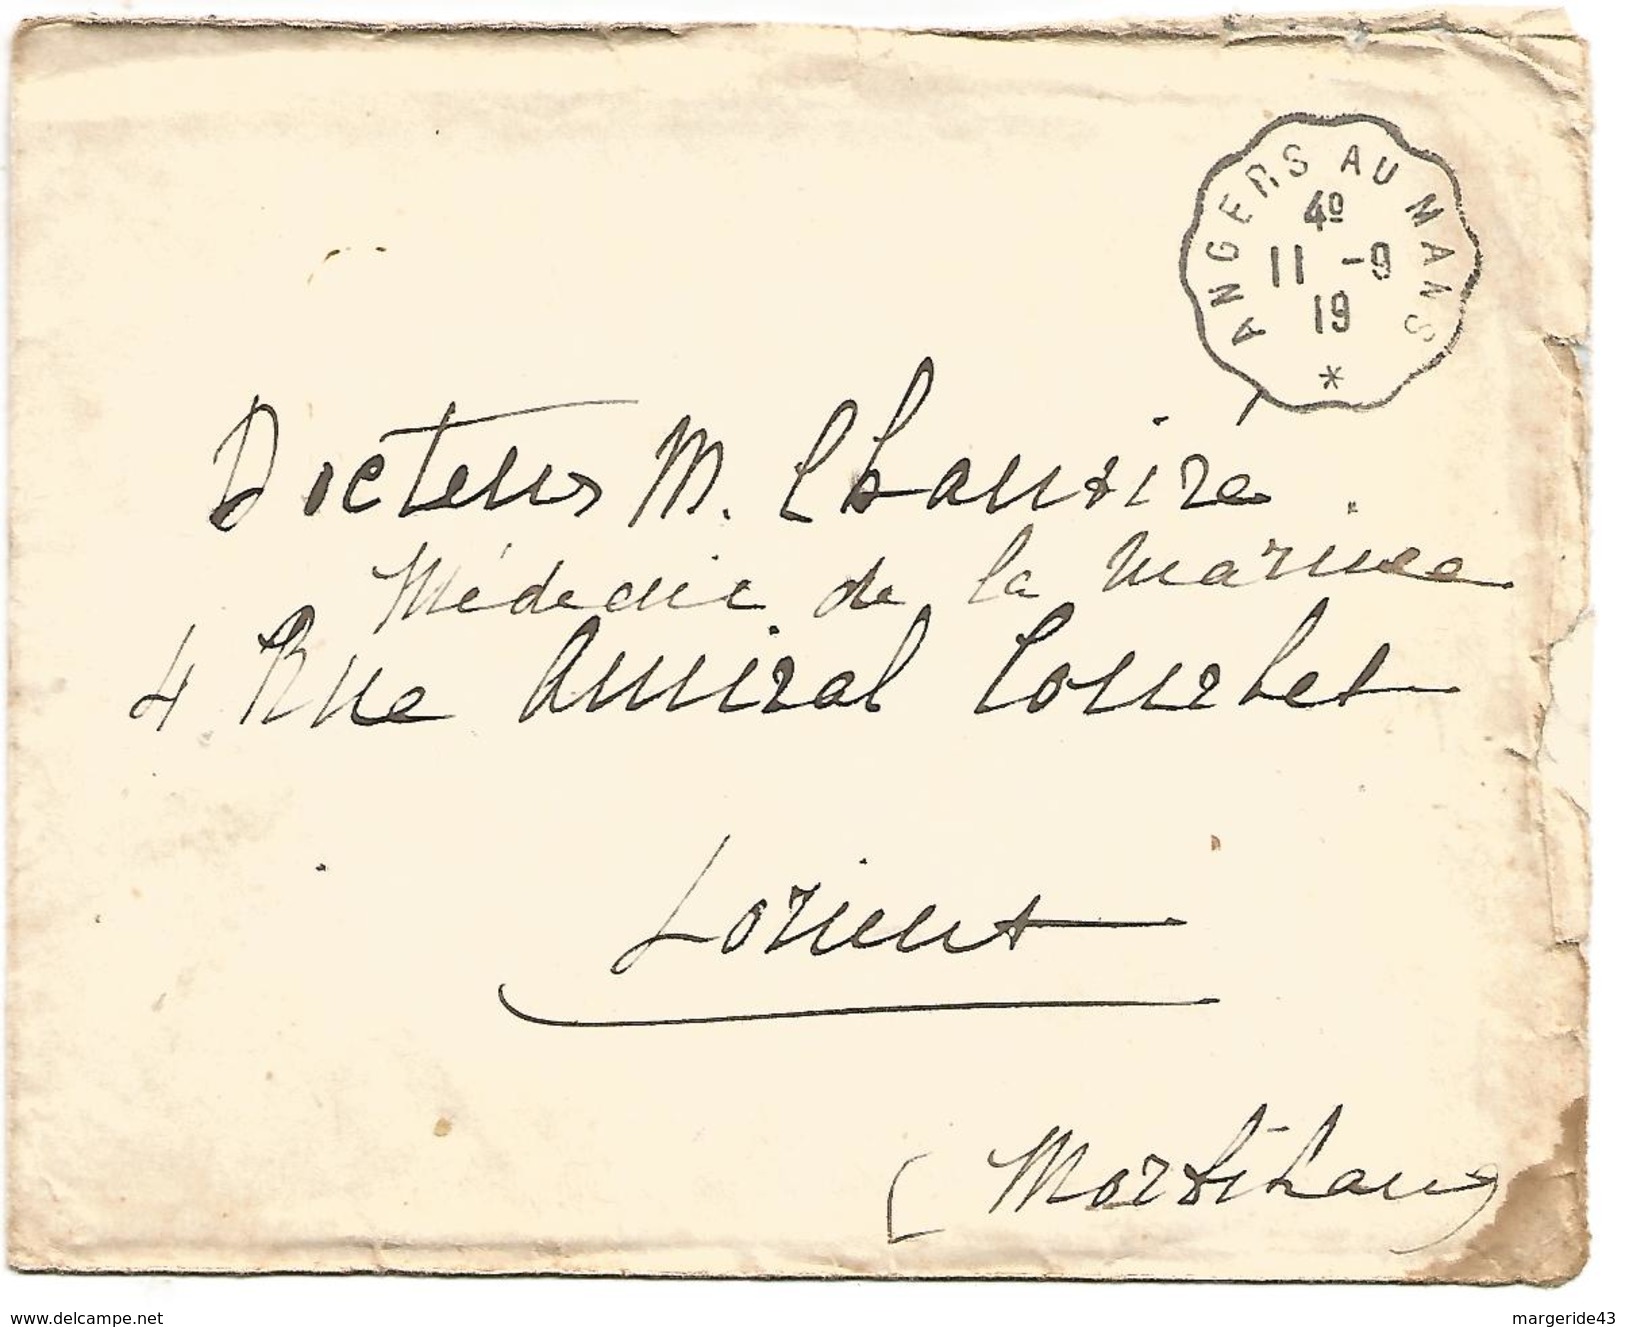 ANGERS AU MANS
4º
11 -9
19
*
Docteur M. Lhouziré.
Médecin de la marine
4 Rue Amiral Courbet
Lorient
(Morbihan)
www.delcampe.net
margeride43